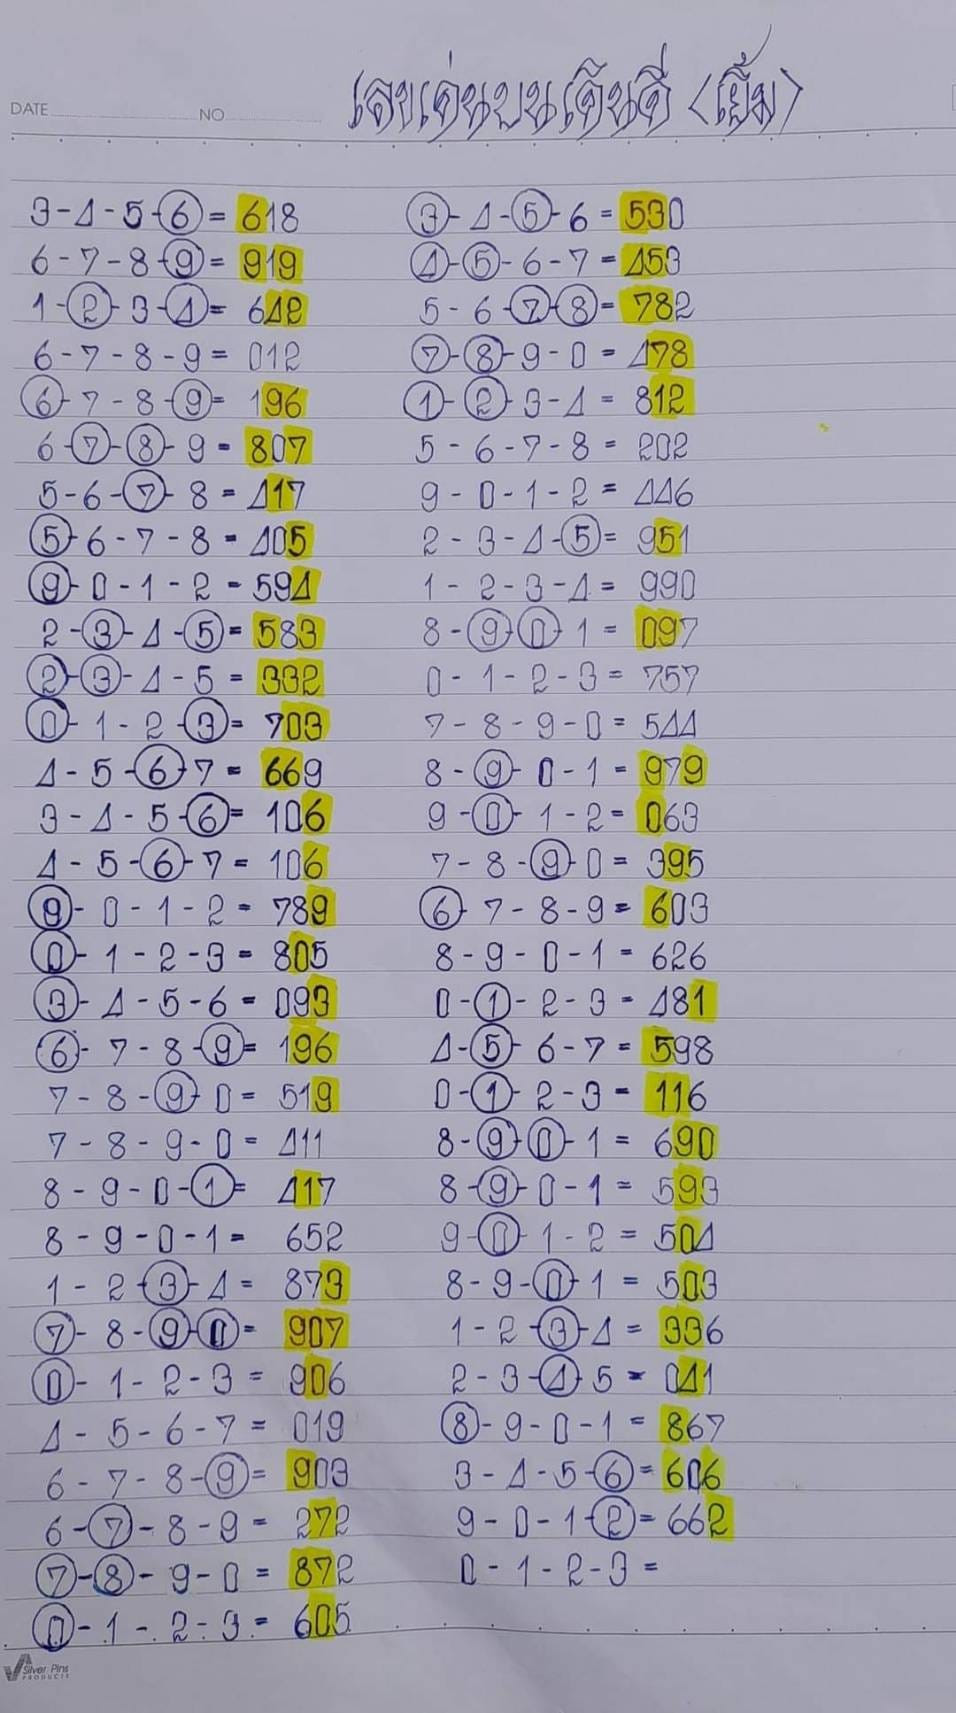 DATE NO
เลขเด่นบนเดินดี (เยิ้ม)
3-4-5-6 = 618
6-7-8-9 = 919
1-2-3-4 = 642
6-7-8-9 = 012
6-7-8-9 = 196
6-7-8-9 = 807
5-6-7-8 = 417
5-6-7-8 = 405
9-0-1-2 = 594
2-3-4-5 = 583
2-3-4-5 = 332
0-1-2-3 = 703
4-5-6-7 = 669
3-4-5-6 = 106
4-5-6-7 = 106
9-0-1-2 = 789
0-1-2-3 = 805
3-4-5-6 = 093
6-7-8-9 = 196
7-8-9-0 = 519
7-8-9-0 = 411
8-9-0-1 = 417
8-9-0-1 = 652
1-2-3-4 = 873
7-8-9-0 = 907
0-1-2-3 = 906
4-5-6-7 = 019
6-7-8-9 = 903
6-7-8-9 = 272
7-8-9-0 = 872
0-1-2-3 = 605
3-4-5-6 = 530
4-5-6-7 = 453
5-6-7-8 = 782
7-8-9-0 = 478
1-2-3-4 = 812
5-6-7-8 = 202
9-0-1-2 = 446
2-3-4-5 = 951
1-2-3-4 = 990
8-9-0-1 = 097
0-1-2-3 = 757
7-8-9-0 = 544
8-9-0-1 = 979
9-0-1-2 = 063
7-8-9-0 = 395
6-7-8-9 = 603
8-9-0-1 = 626
0-1-2-3 = 481
4-5-6-7 = 598
0-1-2-3 = 116
8-9-0-1 = 690
8-9-0-1 = 593
9-0-1-2 = 504
8-9-0-1 = 503
1-2-3-4 = 336
2-3-4-5 = 041
8-9-0-1 = 867
3-4-5-6 = 606
9-0-1-2 = 662
0-1-2-3 =
Silver Pins
PRODUCTS